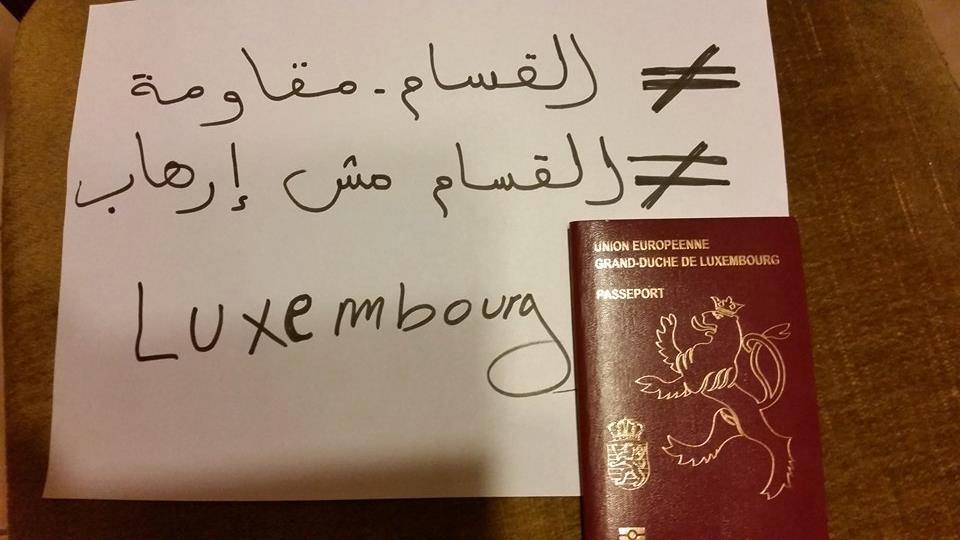 ≠ القسام - مقاومة
≠ القسام مش إرهاب
Luxembourg
UNION EUROPEENNE
GRAND-DUCHE DE LUXEMBOURG
PASSEPORT